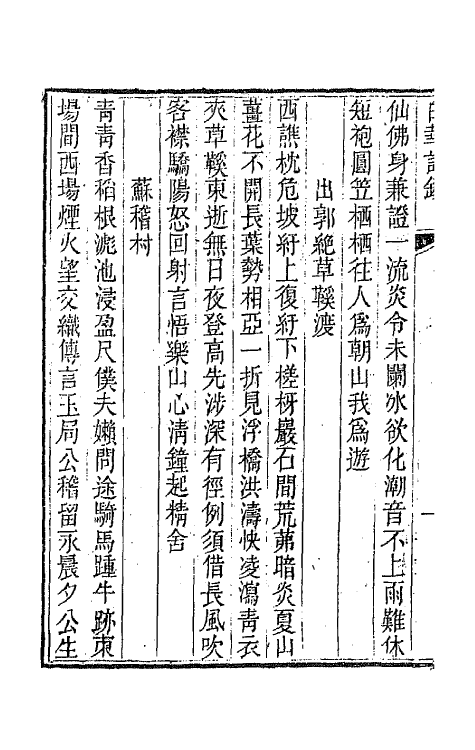 仙佛身兼證一流炎令未闌冰欲化潮音不上雨難休
短袍圓笠栖栖往人爲朝山我爲遊
出郭絶草鞵渡
西譙枕危坡紆上復紆下槎枒巖石間荒茀暗炎夏山
薑花不開長葉勢相亞一折見浮橋洪濤怏凌瀉靑衣
夾草鞵東逝無日夜登高先涉深有徑例須借長風吹
客襟驕陽怒回射言悟樂山心淸鐘起精舍
蘇稽村
靑靑香稻根滮池浸盈尺僕夫嬾問途騎馬踵牛跡東
場間西場煙火望交織傳言玉局公稽留永晨夕公生